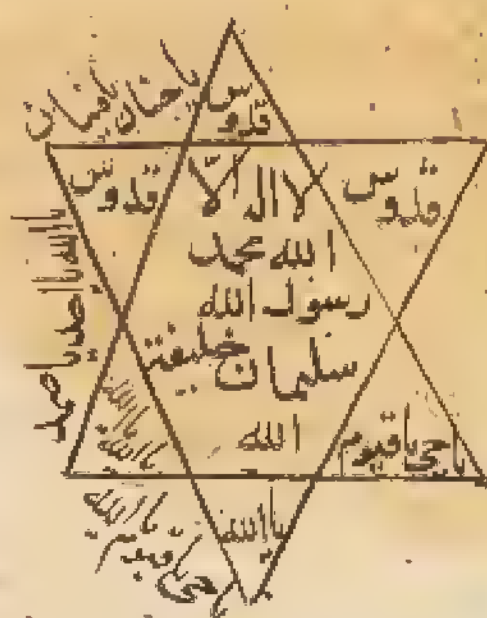 يا حنان يا منان
قدوس
قدوس
قدوس
لا اله الا
الله محمد
رسول الله
سليمان خليفة
الله
يا الله يا احد يا صمد
يا الله
يا الله
يا حي يا قيوم
يا الله
يا الله
يا حي يا قيوم